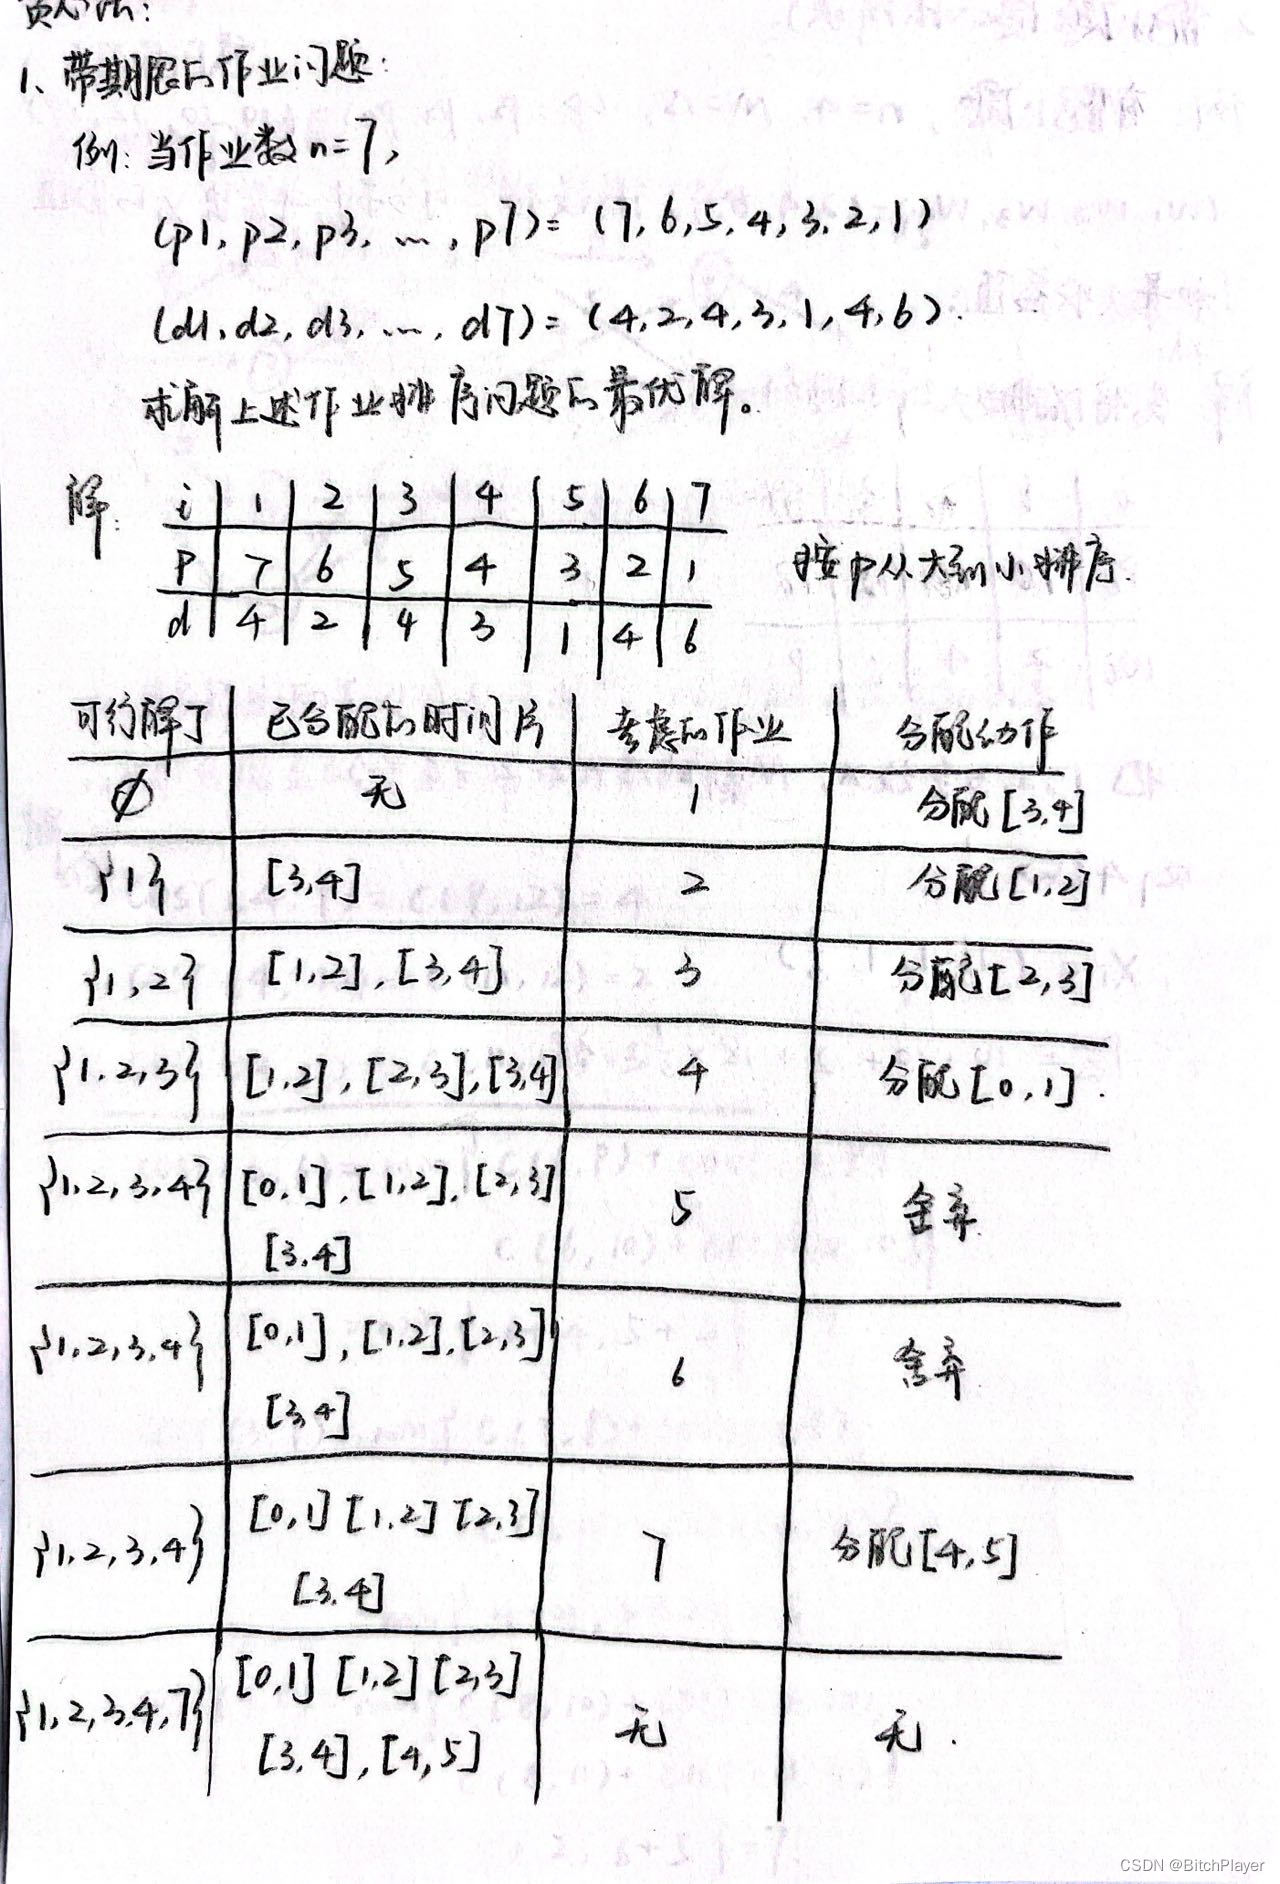 贪心法:
1、带期限的作业问题:
例: 当作业数n=7,
(p1, p2, p3, ..., p7) = (7, 6, 5, 4, 3, 2, 1)
(d1, d2, d3, ..., d7) = (4, 2, 4, 3, 1, 4, 6).
求解上述作业排序问题的最优解。
解: i 1 2 3 4 5 6 7
P 7 6 5 4 3 2 1 按P从大到小排序.
d 4 2 4 3 1 4 6
可行解J 已分配的时间片 考虑的作业 分配动作
∅ 无 1 分配[3,4]
{1} [3,4] 2 分配[1,2]
{1,2} [1,2], [3,4] 3 分配[2,3]
{1,2,3} [1,2], [2,3], [3,4] 4 分配[0,1].
{1,2,3,4} [0,1], [1,2], [2,3] 5 舍弃
[3,4]
{1,2,3,4} [0,1], [1,2], [2,3] 6 舍弃
[3,4]
{1,2,3,4} [0,1] [1,2] [2,3] 7 分配[4,5]
[3,4]
{1,2,3,4,7} [0,1] [1,2] [2,3] 无 无.
[3,4], [4,5]
CSDN @BitchPlayer